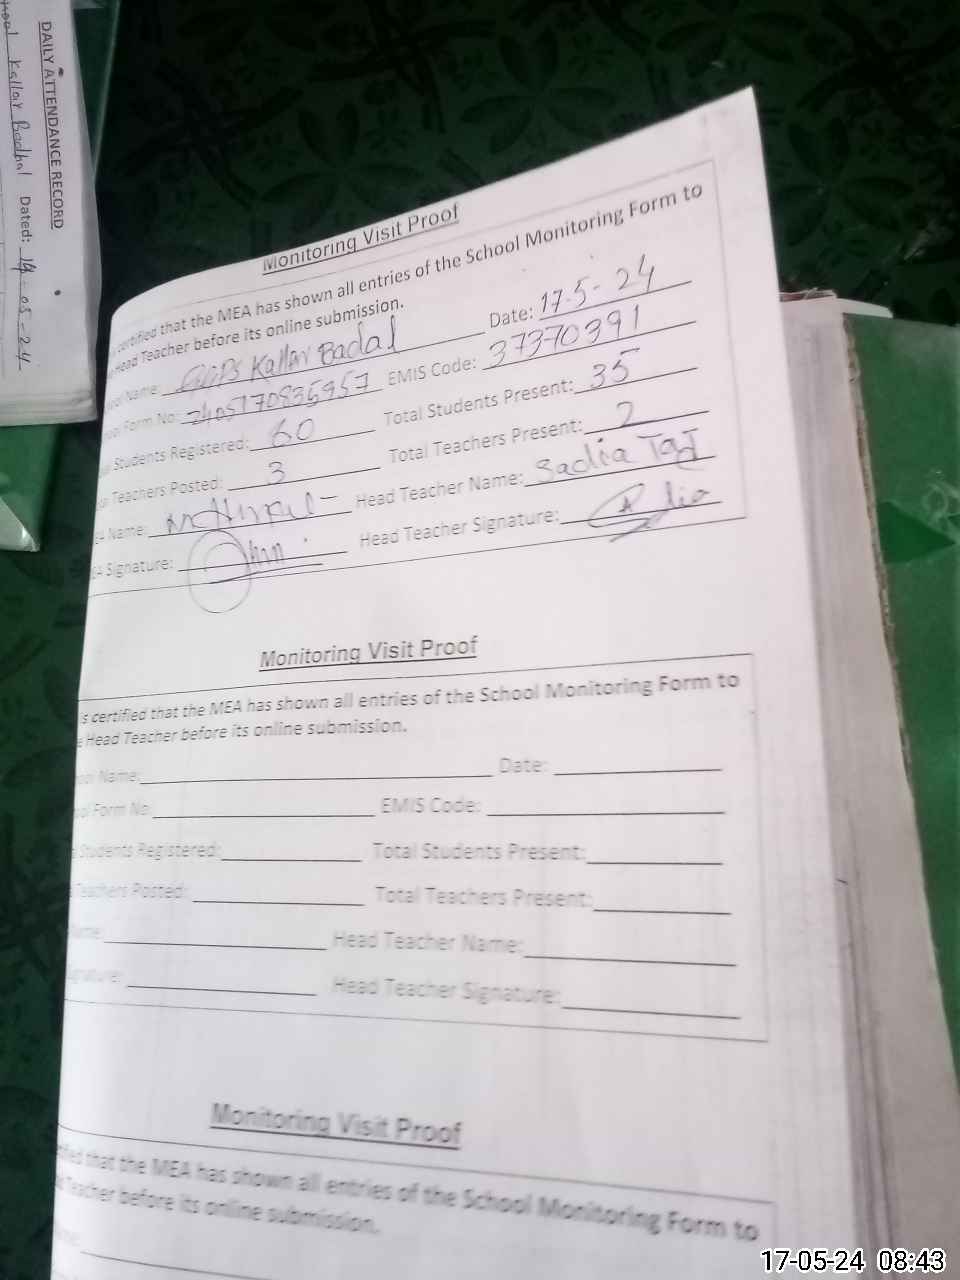 DAILY ATTENDANCE RECORD
Kallar Badhal Dated: 14-05-24
Monitoring Visit Proof
certified that the MEA has shown all entries of the School Monitoring Form to
Head Teacher before its online submission.
Name: GGPS Kallar Badal Date: 17-5-24
Form No: EMIS Code: 37370391
Students Registered: 60 Total Students Present: 35
Teachers Posted: 3 Total Teachers Present: 2
Name: Head Teacher Name: Sadia Taj
Signature: Head Teacher Signature:
Monitoring Visit Proof
is certified that the MEA has shown all entries of the School Monitoring Form to
Head Teacher before its online submission.
Name: Date:
Form No: EMIS Code:
Students Registered: Total Students Present:
Teachers Posted: Total Teachers Present:
Name: Head Teacher Name:
Signature: Head Teacher Signature:
Monitoring Visit Proof
that the MEA has shown all entries of the School Monitoring Form to
Teacher before its online submission.
17-05-24 08:43